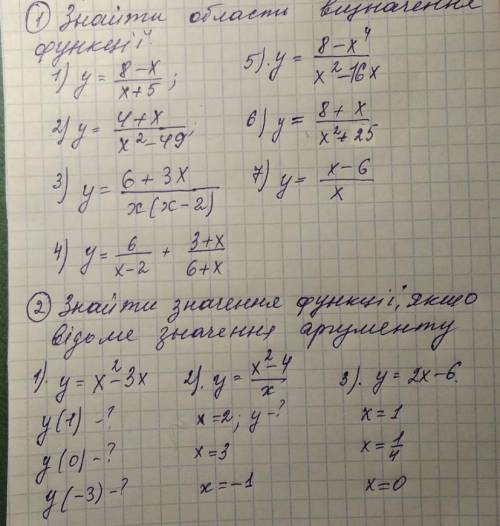 ① Знайти области визначення
функції.
1) y = (8-x)/(x+5);
2) y = (4+x)/(x²-49);
3) y = (6+3x)/(x(x-2))
4) y = 6/(x-2) + (3+x)/(6+x)
5). y = (8-x⁴)/(x²-16x)
6) y = (8+x)/(x²+25)
7) y = (x-6)/x
② Знайти значення функції, якщо
відоме значення аргументу
1). y = x²-3x
y(1) -?
y(0) -?
y(-3) -?
2). y = (x²-4)/x
x=2; y-?
x=3
x=-1
3). y = 2x-6.
x=1
x=1/4
x=0